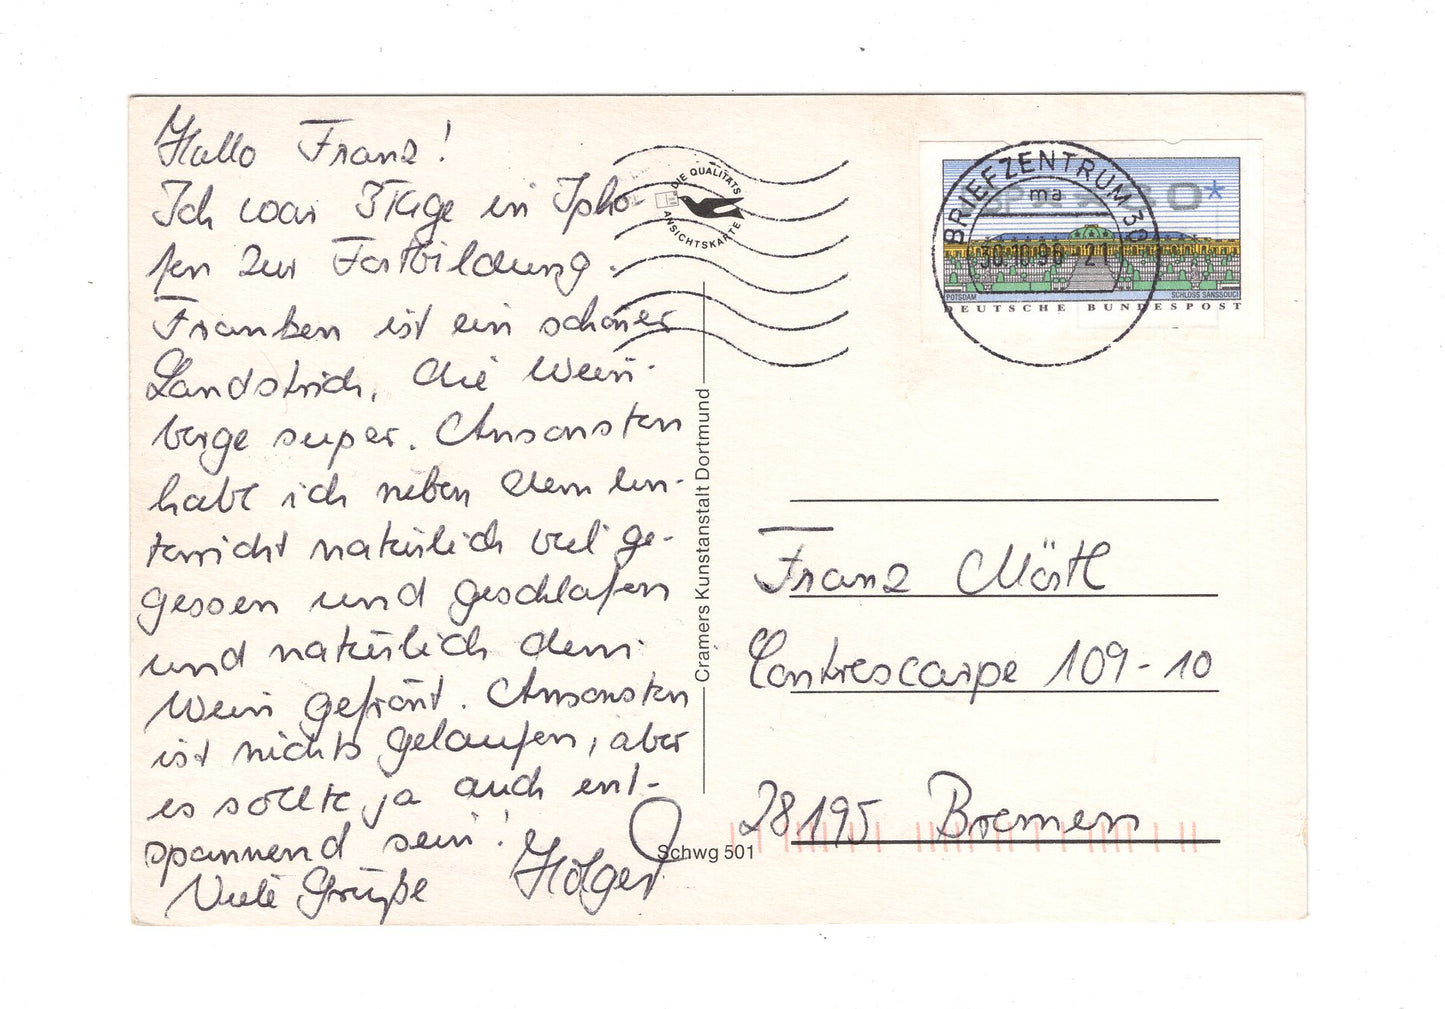 Hallo Franz!
Ich war 3 Tage in Ipho
fen zur Fortbildung.
Franken ist ein schöner
Landstrich, die Wein-
berge super. Ansonsten
habe ich neben dem Un-
terricht natürlich viel ge-
gessen und geschlafen
und natürlich dem
Wein gefrönt. Ansonsten
ist nichts gelaufen, aber
es sollte ja auch ent-
spannend sein!
Viele Grüße Holger
DIE QUALITÄTS
ANSICHTSKARTE
Cramers Kunstanstalt Dortmund
Schwg 501
BRIEFZENTRUM 30
ma
30.10.96 21
POTSDAM SCHLOSS SANSSOUCI
DEUTSCHE BUNDESPOST
Franz
Contrescarpe 109-10
28195 Bremen